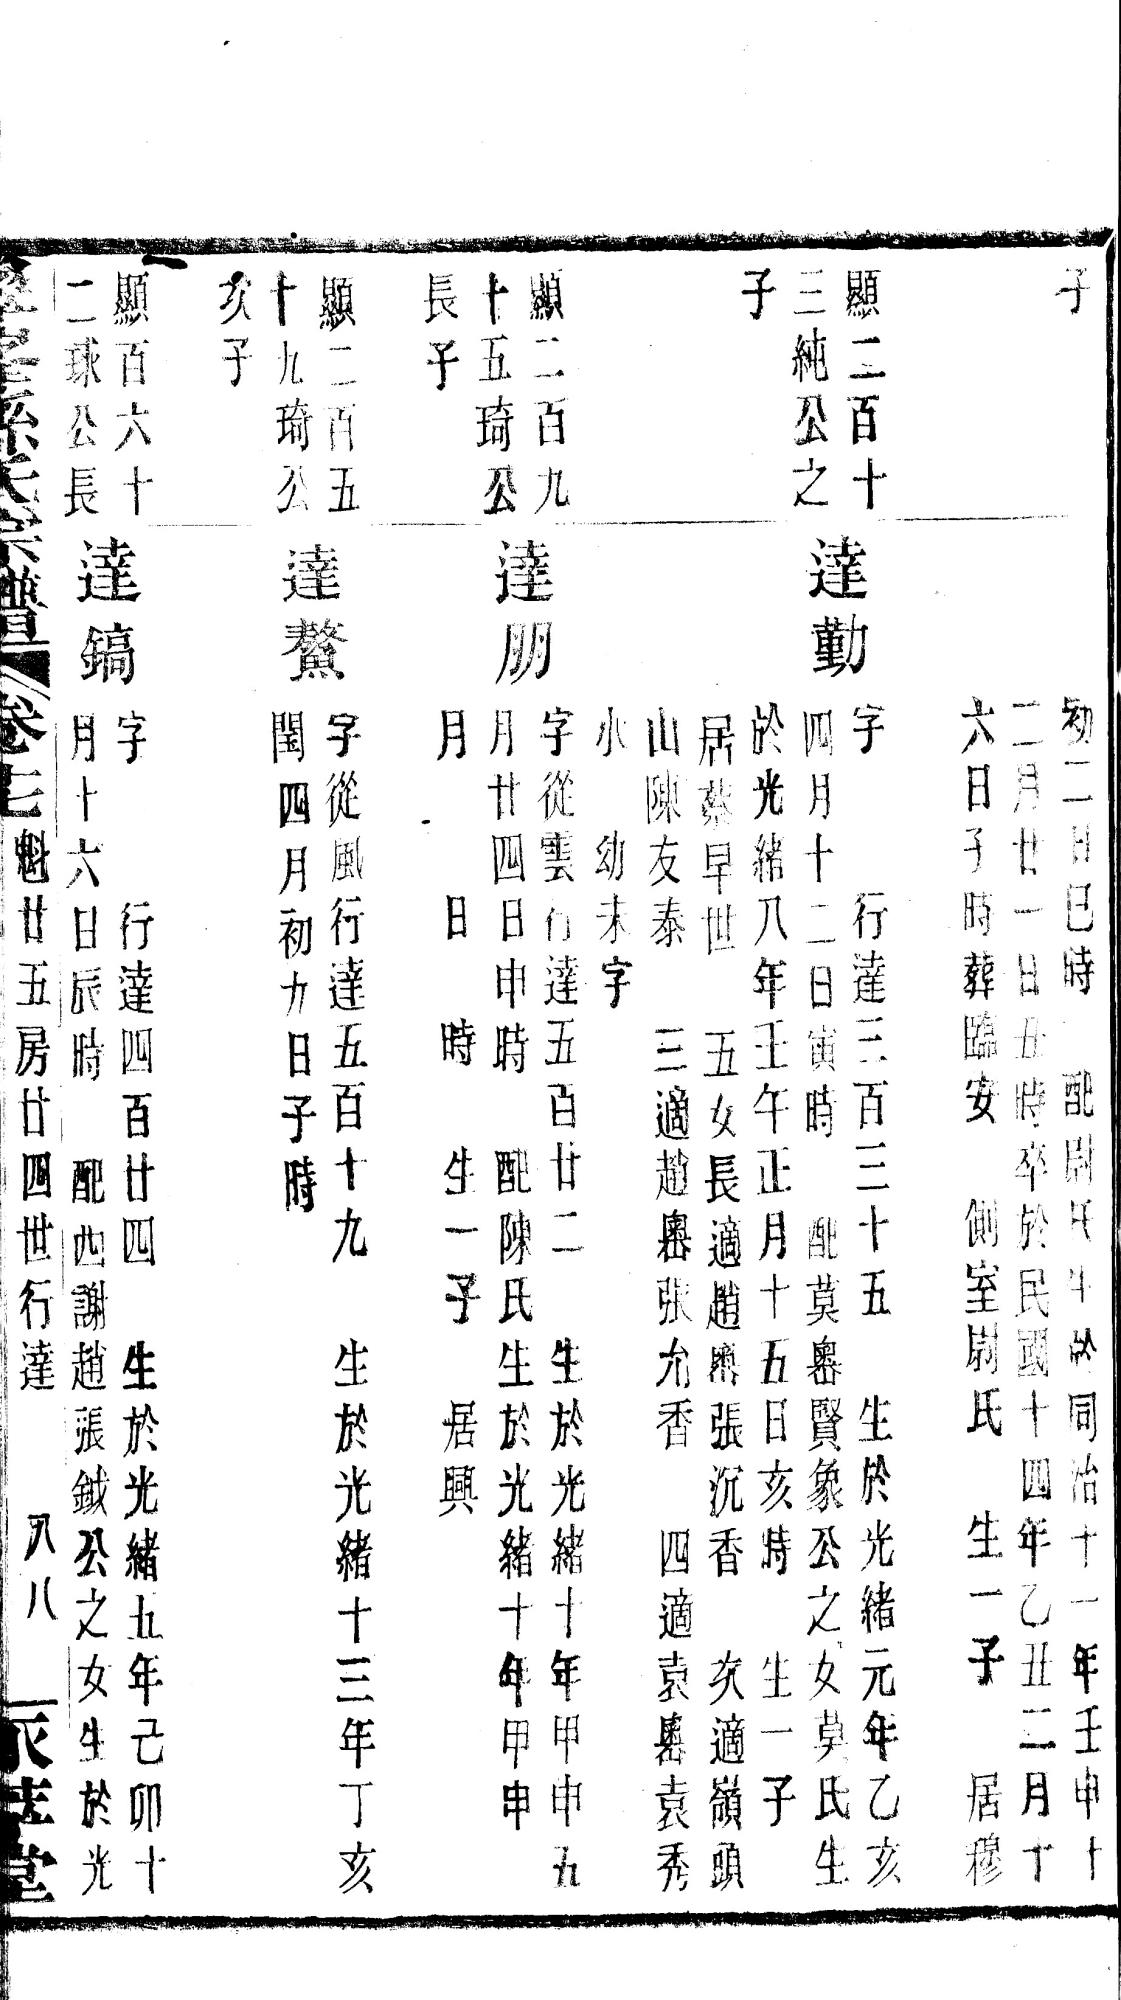 子
初二日巳時 配尉氏生於同治十一年壬申十
二月廿一日丑時卒於民國十四年乙丑二月十
六日子時葬臨安 側室尉氏 生一子 居穆
顯二百十
三純公之
子
達勤
字 行達三百三十五 生於光緒元年乙亥
四月十二日寅時 配莫嶴賢象公之女莫氏生
於光緒八年壬午正月十五日亥時 生一子
居蔡早世 五女長適趙嶴張沉香 次適嶺頭
山陳友泰 三適趙嶴張允香 四適袁嶴袁秀
水 幼未字
顯二百九
十五琦公
長子
達朋
字從雲行達五百廿二 生於光緒十年甲申五
月廿四日申時 配陳氏生於光緒十年甲申
月 日 時 生一子 居興
顯二百五
十九琦公
次子
達鰲
字從風行達五百十九 生於光緒十三年丁亥
閏四月初九日子時
顯百六十
二球公長
達鎬
字 行達四百廿四 生於光緒五年己卯十
月十六日辰時 配西謝趙張鉞公之女生於光
孫氏宗譜 卷七 魁廿五房廿四世行達 八八 堂